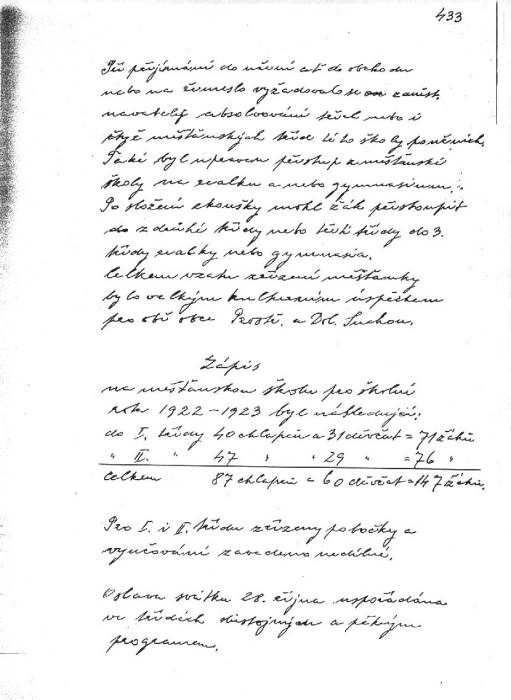 433
Při přijímání do učení ať do obchodu
nebo na řemeslo vyžadovalo se od zaměst-
navatelů absolvování třech nebo i
čtyř měšťanských tříd této školy
Také byl upraven přestup z měšťanské
školy na reálku a nebo gymnasium.
Po složení zkoušky mohl žák přestoupit
do z druhé třídy nebo třetí třídy do 3.
třídy reálky nebo gymnasia.
Celkem vzato zřízení měšťanky
bylo velkým kulturním úspěchem
pro obě obce Prostř. a Dol. Suchou.
Zápis
na měšťanskou školu pro školní
rok 1922-1923 byl následující:
do I. třídy 40 chlapců a 31 děvčat = 71 žáků
" II. " 47 " " 29 " = 76 "
Celkem 87 chlapců a 60 děvčat = 147 žáků.
Pro I. i II. třídu zřízeny pobočky a
vyučování zavedeno nedělné.
Oslava svátku 28. října uspořádána
ve třídách důstojným a pěkným
programem.